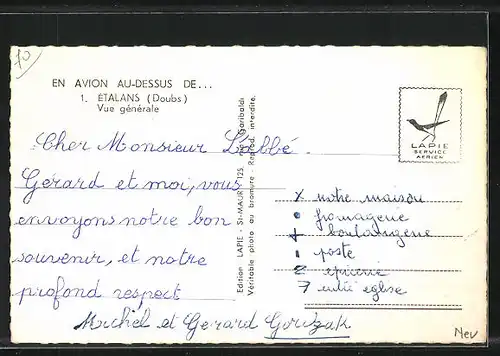 70
EN AVION AU-DESSUS DE...
1. ÉTALANS (Doubs)
Vue générale
Cher Monsieur L'abbé.
Gérard et moi, vous
envoyons notre bon
souvenir, et notre
profond respect
Michel et Gerard
Edition LAPIE - St-MAUR 125, rue Garibaldi
Véritable photo au bromure - Reprod. interdite.
LAPIE
SERVICE
AERIEN
x notre maison
• fromagerie
+ boulangerie
poste
2 epicerie
7 église
Nev